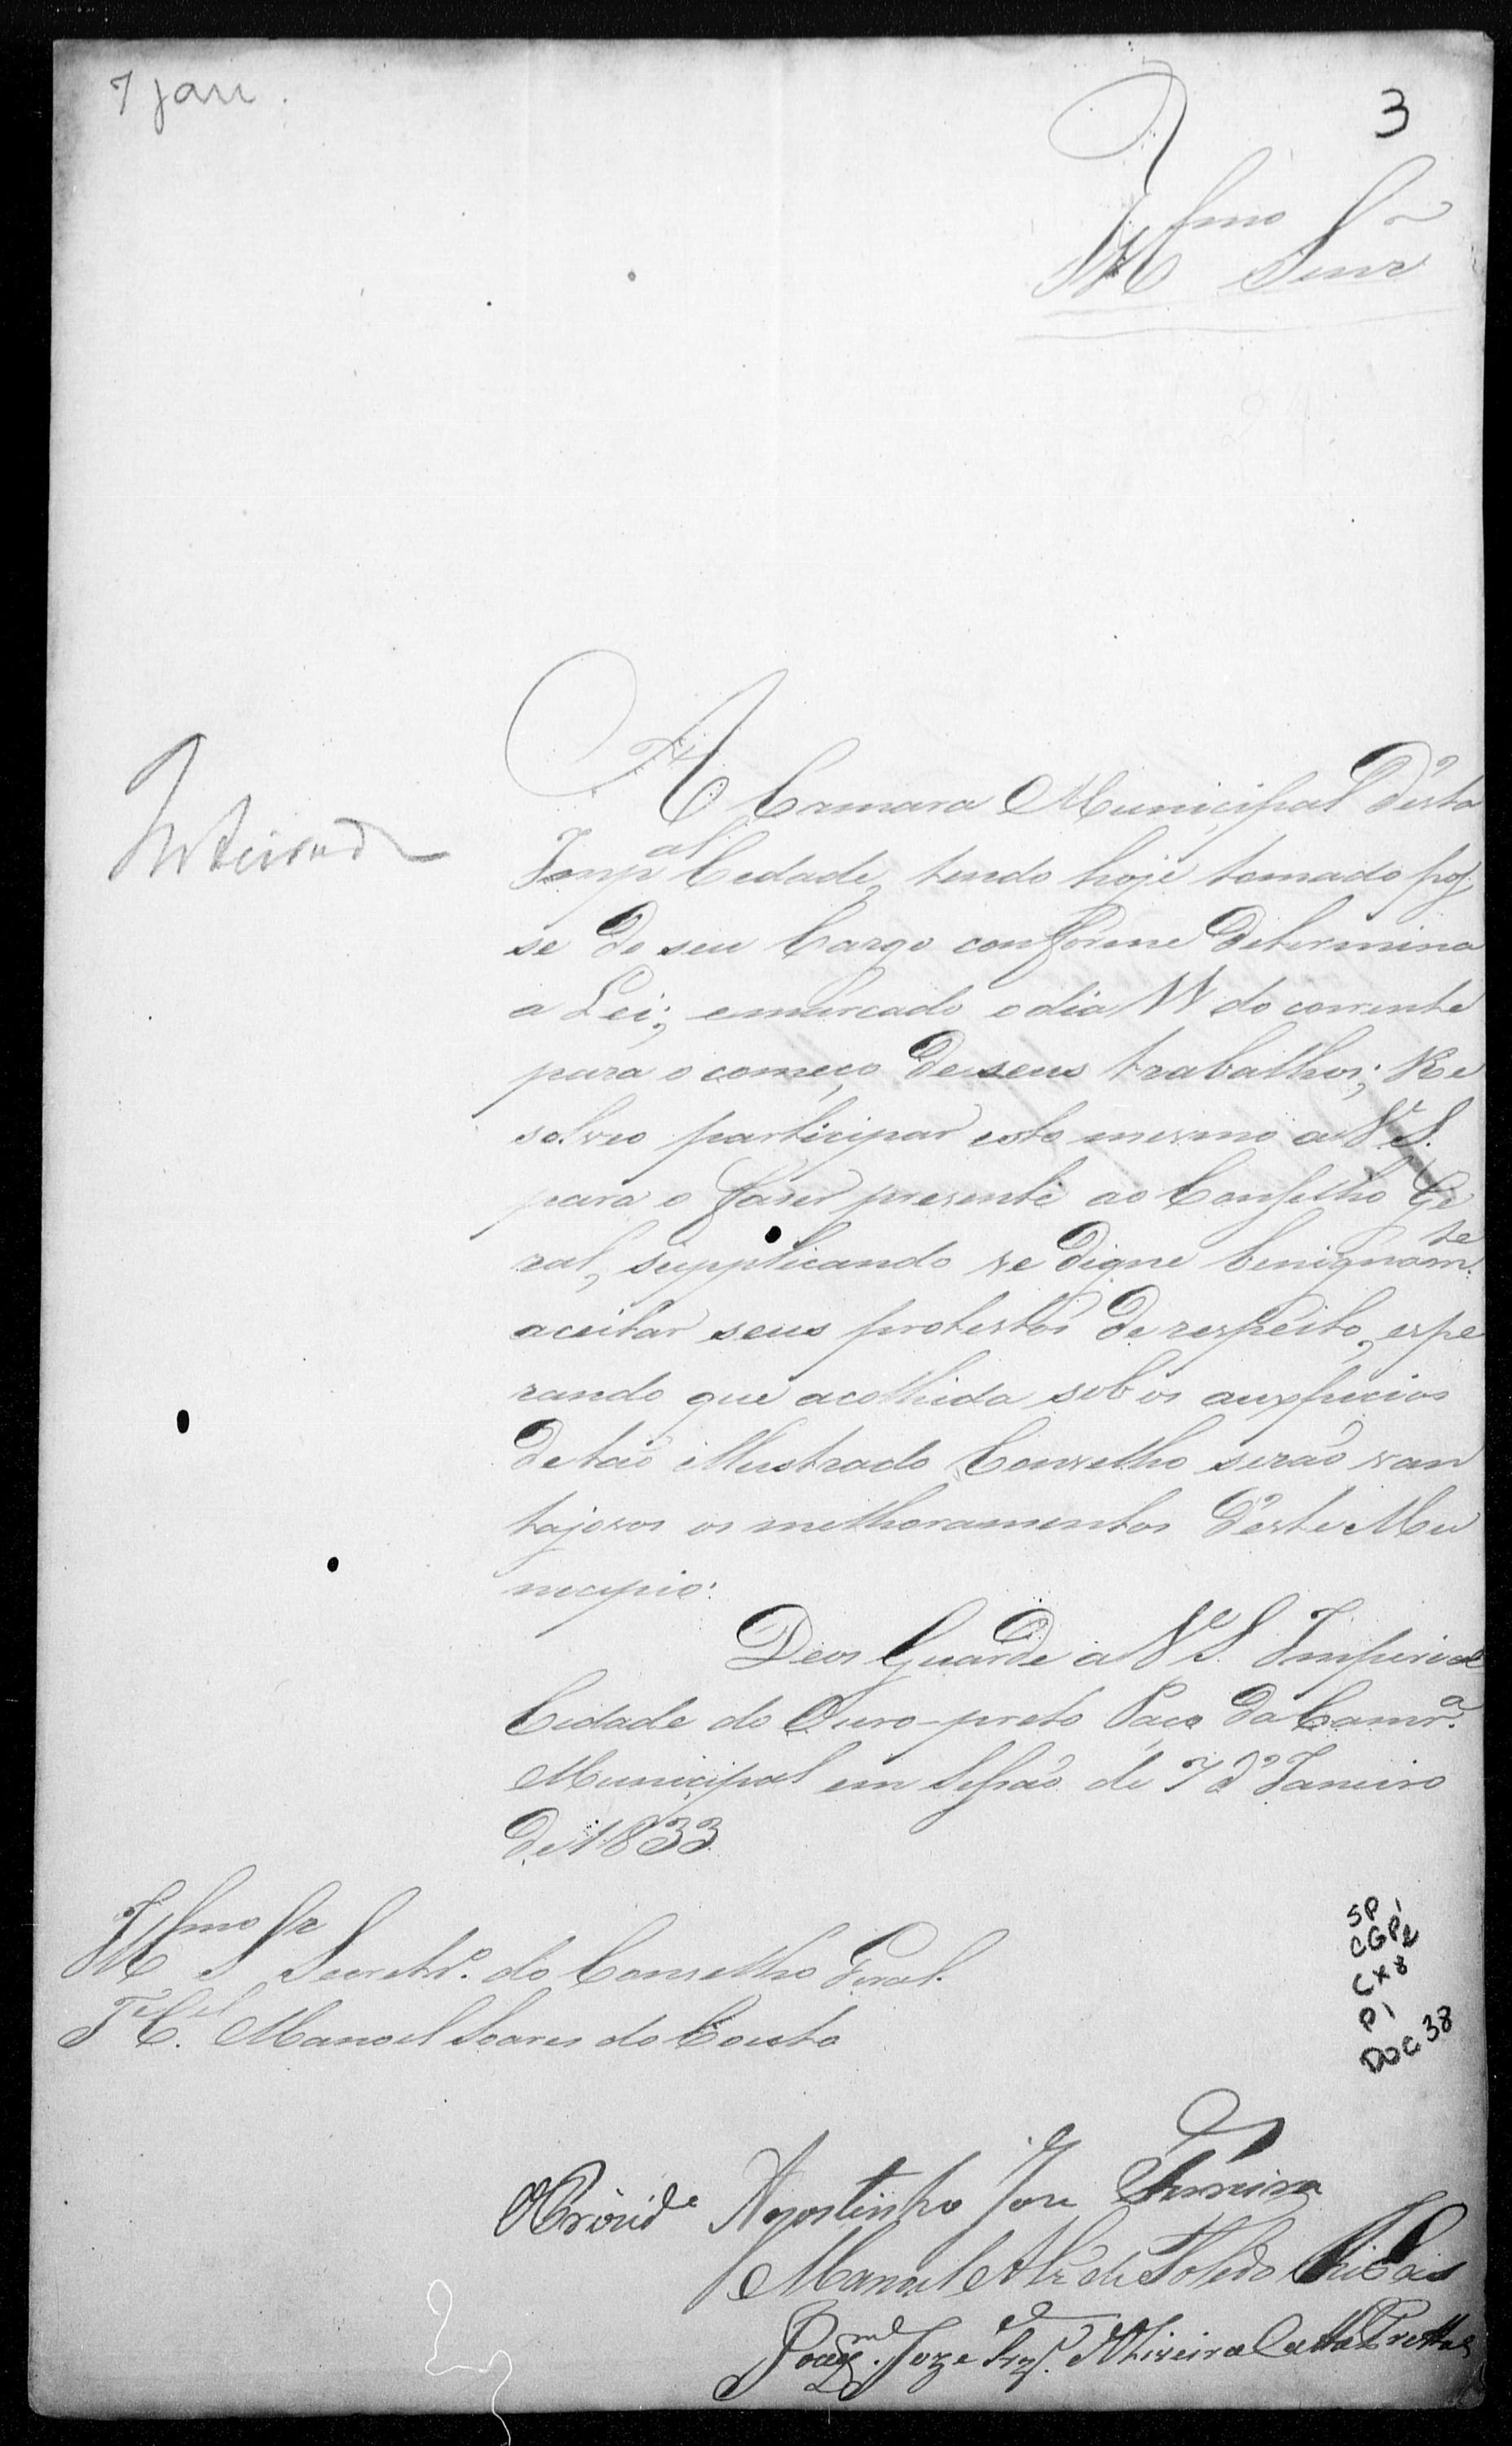 7 jan.
3
Illmo Senr
A Camara Municipal d'esta
Impal Cidade, tendo hoje tomado pos
se de seu Cargo conforme determina
a Lei; e marcado o dia do corrente
para o começo de seus trabalhos; Re
solveo participar esto mesmo a V. S.
para o faser presente ao Conselho Ge
ral, supplicando se digne benignamte
aceitar seus protestos de respeito, espe
rando que acolhida sob os auspicios
de taõ illustrado Conselho seraõ van
tajosos os melhoramentos d'este Mu
nicipio.
Deos Guarde a V. S. Imperial
Cidade do Ouro-preto Paço da Camra.
Municipal em Sessaõ de 7 d' Janeiro
de 1833
Inteirado
Illmo Sr Secretro. do Conselho Geral.
Te Cel. Manoel Soares do Couto
SP
CGP1
CX8
P1
DOC 38
Agostinho Jose Ferreira
Manoel de Toledo
Joaqm. Joze Oliveira Catta Pretta